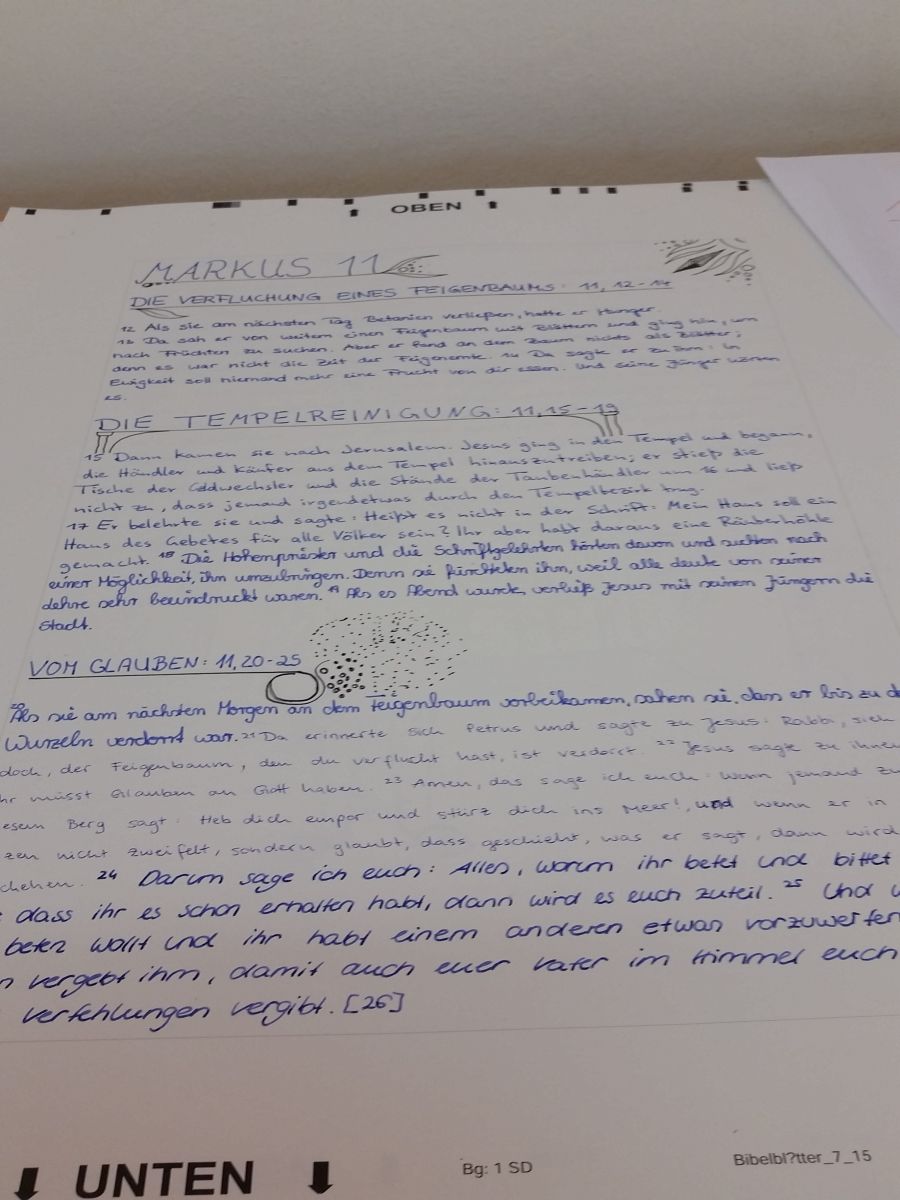 OBEN
MARKUS 11
DIE VERFLUCHUNG EINES FEIGENBAUMS: 11, 12-14
12 Als sie am nächsten Tag Betanien verließen, hatte er Hunger.
13 Da sah er von weitem einen Feigenbaum mit Blättern und ging hin, um
nach Früchten zu suchen. Aber er fand an dem Baum nichts als Blätter;
denn es war nicht die Zeit der Feigenernte. 14 Da sagte er zu ihm: In
Ewigkeit soll niemand mehr eine Frucht von dir essen. Und seine Jünger hörten
es.
DIE TEMPELREINIGUNG: 11,15-19
15 Dann kamen sie nach Jerusalem. Jesus ging in den Tempel und begann,
die Händler und Käufer aus dem Tempel hinauszutreiben; er stieß die
Tische der Geldwechsler und die Stände der Taubenhändler um 16 und ließ
nicht zu, dass jemand irgendetwas durch den Tempelbezirk trug.
17 Er belehrte sie und sagte: Heißt es nicht in der Schrift: Mein Haus soll ein
Haus des Gebetes für alle Völker sein? Ihr aber habt daraus eine Räuberhöhle
gemacht. 18 Die Hohenpriester und die Schriftgelehrten hörten davon und suchten nach
einer Möglichkeit, ihn umzubringen. Denn sie fürchteten ihn, weil alle Leute von seiner
Lehre sehr beeindruckt waren. 19 Als es Abend wurde, verließ Jesus mit seinen Jüngern die
Stadt.
VOM GLAUBEN: 11,20-25
20 Als sie am nächsten Morgen an dem Feigenbaum vorbeikamen, sahen sie, dass er bis zu d
Wurzeln verdorrt war. 21 Da erinnerte sich Petrus und sagte zu Jesus: Rabbi, sieh
doch, der Feigenbaum, den du verflucht hast, ist verdorrt. 22 Jesus sagte zu ihnen
hr müsst Glauben an Gott haben. 23 Amen, das sage ich euch: Wenn jemand zu
esem Berg sagt: Heb dich empor und stürz dich ins Meer!, und wenn er in
zen nicht zweifelt, sondern glaubt, dass geschieht, was er sagt, dann wird
chehen. 24 Darum sage ich euch: Alles, worum ihr betet und bittet
dass ihr es schon erhalten habt, dann wird es euch zuteil. 25 Und w
beten wollt und ihr habt einem anderen etwas vorzuwerfen
n vergebt ihm, damit auch euer Vater im Himmel euch
verfehlungen vergibt. [26]
UNTEN
Bg: 1 SD
Bibelbl?tter_7_15